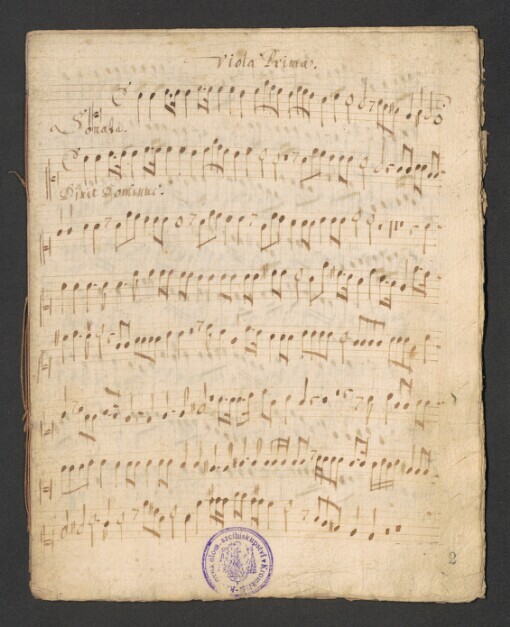 Viola Prima.
Sonata.
Dixit Dominus.
2